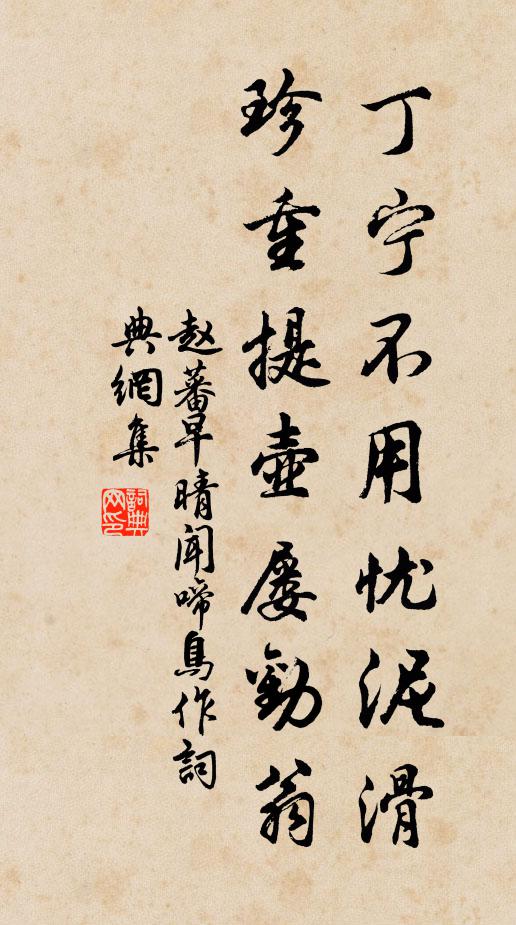 丁宁不用忧泥滑
珍重提壶屡勸翁
赵蕃早晴闻啼鳥作詞
典網集
詞典
网印